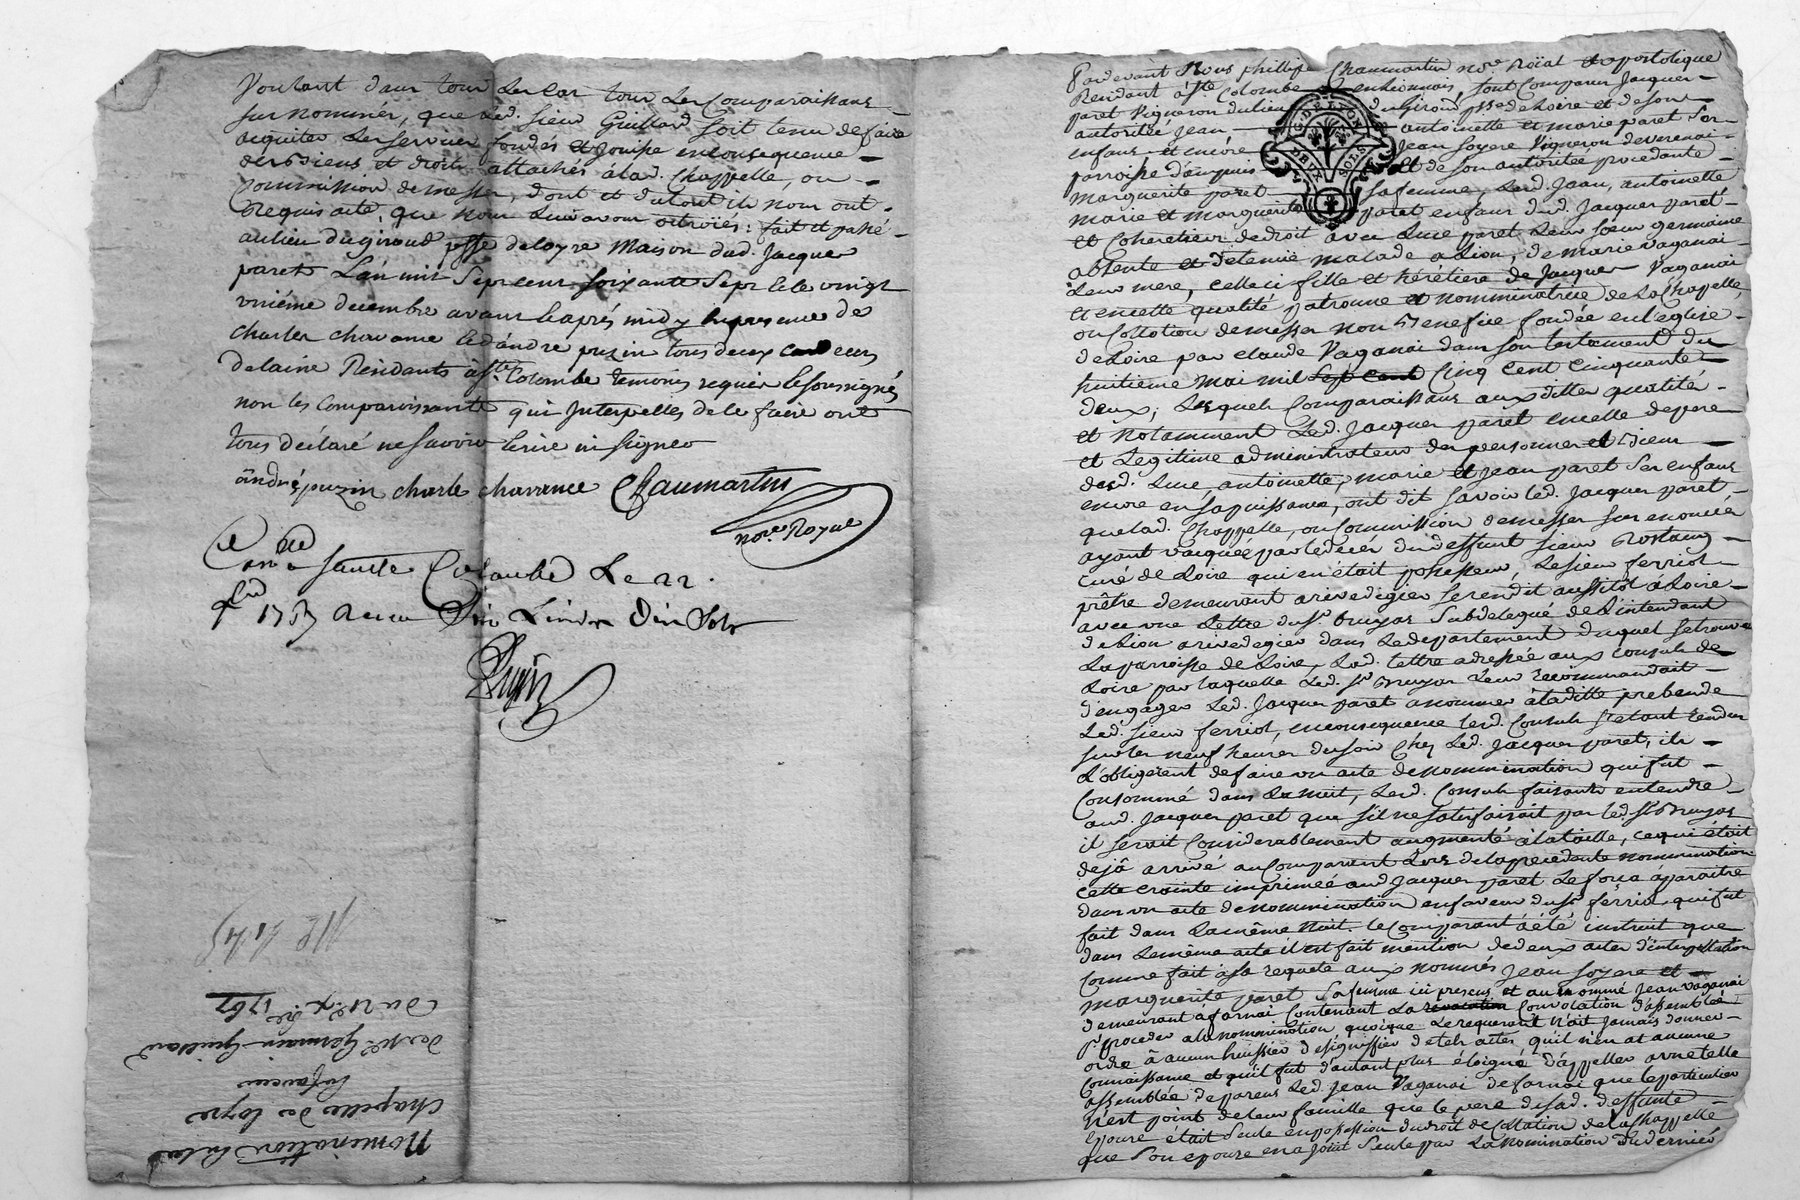 Voulant dans tous les cas tous les Comparaissans
sur nommés, que led. sieur Guillard soit tenu de faire
aquiter les services fondés et jouisse en consequence
des biens et droits attachés a lad. Chappelle, ou
Commission de messes, dont et du tout ils nous ont
Requis acte, que nous leur avons octroiés: fait et passé
au lieu du giroud psse de loyre maison dud. Jacques
paret L'an mil Sept cent soixante Sept & le vingt
uniéme decembre avant le aprés midy en presence de
charles chavance & d'andré puzin tous deux cardeurs
de laine Résidants à ste Colombe temoins requis & soussignés
non les comparoissants qui Interpellés de le faire ont
tous déclaré ne savoir écrire ni signer
andré puzin charle chavance Chaumartin
no.re Royal
sainte Colombe Le 22.
1767 Reçu Six Livres Dix Sols
G. DE LYON
DEUX SOLS
Pardevant Nous phillipe Chaumartin no.re Roïal et apostolique
Résidant à ste Colombe les viennois, sont Comparus Jacques
paret Vigneron du lieu du Giroud psse de Loire et de son
autorité Jean, antoinette et marie paret Ses
enfans et encore Jean soyere Vigneron de verenai
parroisse d'ampuis et de son autoritée procedante
marguerite paret sa femme, Lesd. Jean, antoinette
marie et marguerite paret enfans dud. Jacques paret
et Coheretiers de droit avec Luce paret Leur soeur germaine
absente et detenue malade a Lion, de marie vaganai
Leur mere, celle ci fille et héretiere de Jacques Vaganai
et en cette qualité patronne et nominatrice de la Chapelle,
ou Collation de messes non Benefice fondée en l'eglise
de Loire par claude Vaganai dans son testament du
huitieme mai mil Sept cent Cinq cent cinquante
deux, Lesquels Comparaissans aux dittes qualités
et Notamment Led. Jacques paret en celle de pere
et Legitime administrateur des personnes et Biens
desd. Luce, antoinette, marie et Jean paret Ses enfans
encore en sa puissance, ont dit savoir led. Jacques paret
que lad. Chappelle, ou Commission de messes sus enoncée
ayant vacquée par le décés du deffunt sieur Rostaing
curé de Loire qui en était possesseur, Le sieur ferriol
prêtre demeurant a rivedegier se rendit aussitôt à Loire
avec une Lettre du sr. Bruyas Subdelegué de l'intendant
de Lion a rivedegier dans Le departement duquel se trouve
La parroisse de Loire, Lad. Lettre adressée aux consuls de
Loire par laquelle Led. sr Bruyas Leur recommandait
d'engager Led. Jacques paret a nommer à laditte prebende
Led. sieur ferriol, en consequence lesd. Consuls s'étant rendus
sur les neuf heures du soir Chez Led. Jacques paret, ils
L'obligerent de faire un acte de nommination qui fut
Consommé dans La nuit, Lesd. Consuls faisants entendre
aud. Jacques paret que s'il ne satisfaisait pas led. sr Bruyas
il serait Considerablement augmenté à la taille, ce qui était
dejà arrivé au Comparant Lors de la precedente nommination
cette crainte imprimée aud Jacques paret Le força a paraitre
dans un acte de nommination en faveur du sr ferriol qui fut
fait dans La même Nuit. le Comparant a été instruit que
dans Le même acte il est fait mention de deux actes d'interpellation
Comme fait à sa requete aux nommés Jean soyere et
marguerite paret sa femme ici presens et au nommé Jean vaganai
demeurant a farnai Contenant la Convocation d'assemblée
pr. proceder a la nommination quoique Le requerant n'ait Jamais donner
ordre à aucun huissier de signiffier de tels actes, qu'il n'en at aucune
Connaissance et qu'il fut d'autant plus éloigné d'appeller a une telle
assemblée de parens Led. Jean Vaganai de farnai que le particulier
n'est point de leur famille que le pere de sad. deffunte
Epouse était Seul en possession du droit de Collation de la Chappelle
que Son epouse en a Joui Seule par La nommination du dernier
Nomination a la
chapelle de loyre
en faveur
de sr Germain Guillard
du 21e Xbre 1767